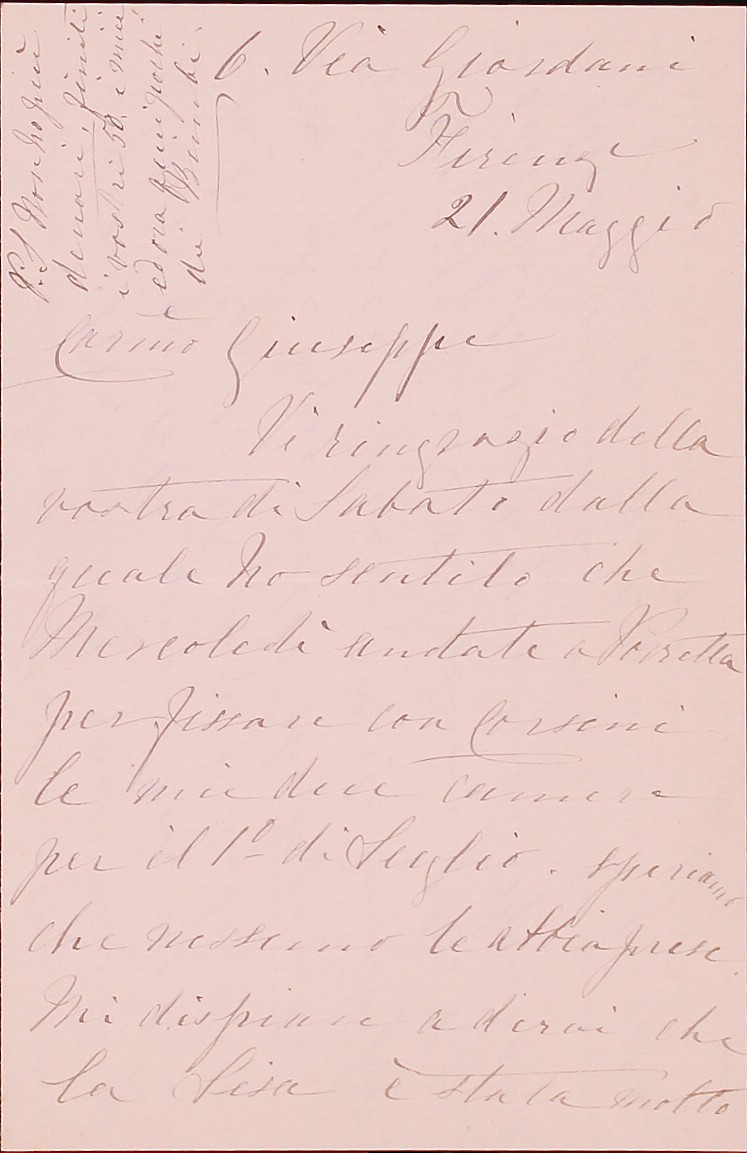 6. Via Giordani
Firenze
21. Maggio
Carmo Giuseppe
Vi ringrazio della
vostra di Sabato dalla
quale ho sentito che
Mercoledì andate a Porretta
per fissare con Corsini
le mie due camere
per il 1º di Luglio. speriamo
che nessuno le abbia prese.
Mi dispiace a dirvi che
la Lisa è stata molto
P.S. Non ho più
denari, finiti
i vostri 50, i miei
ed ora quei pochi
dei Bimbi.